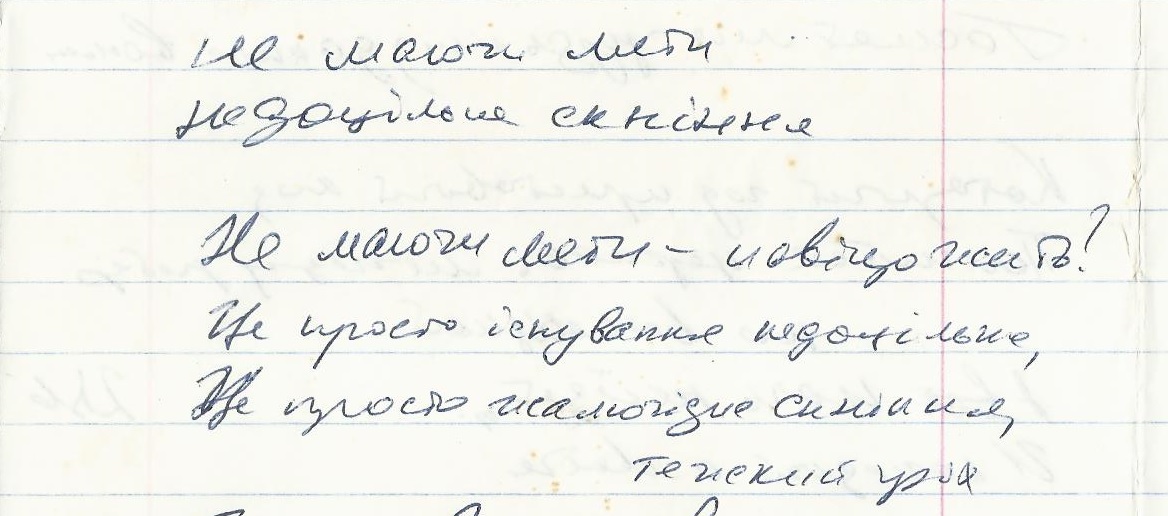 Не маючи мети
недоцільне скніння
Не маючи мети – навіщо жить?
Це просто існування недоцільне,
Це просто жалюгідне скніння,
тяжкий